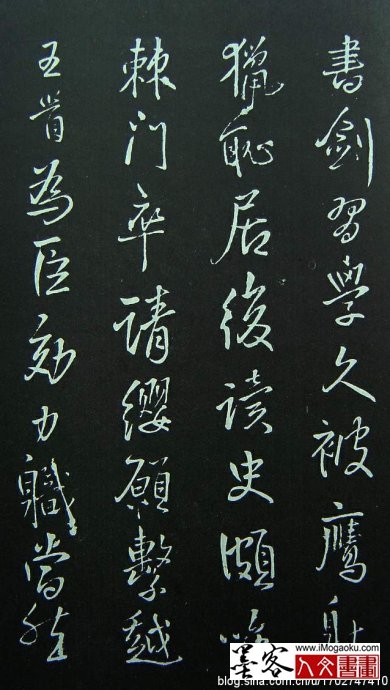 書劍習學久被鷹射
獵恥居後讀史頗
棘門卒請纓願繫越
王首為臣効力職當然
墨客
人文書畫
www.iMogaoku.com
blog.sina.com.cn/u/1702747410